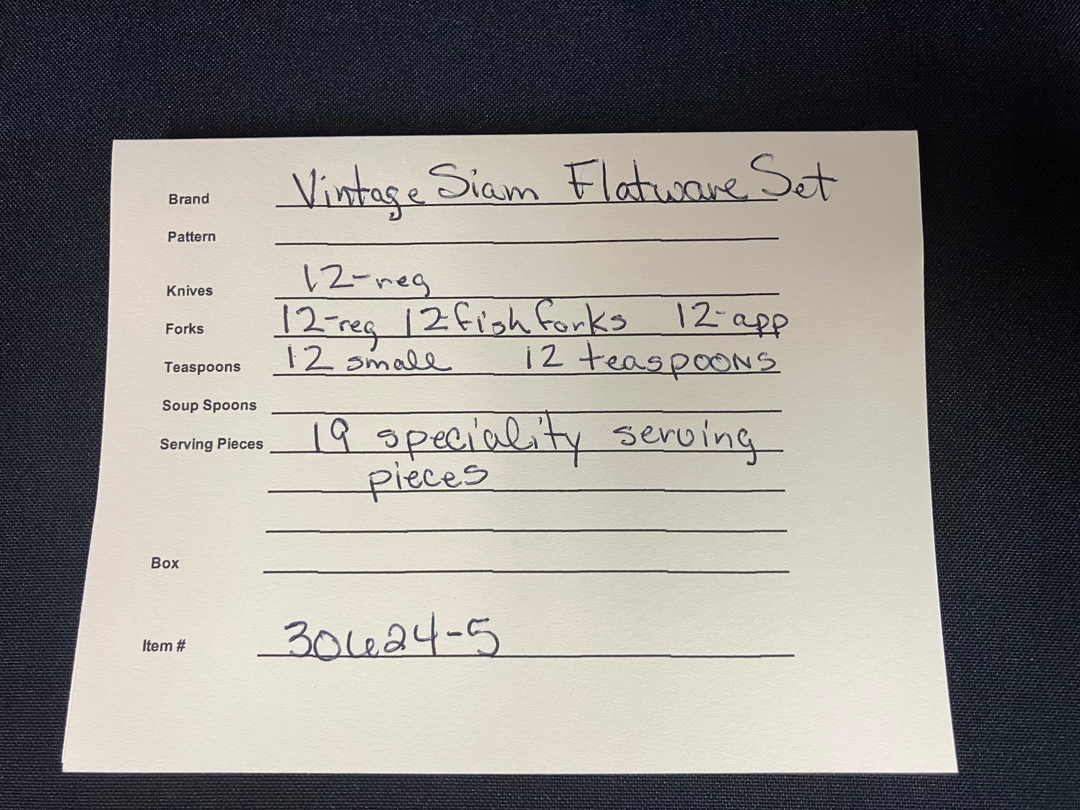 Brand Vintage Siam Flatware Set
Pattern
Knives 12-reg
Forks 12-reg 12 fish forks 12-app
Teaspoons 12 small 12 teaspoons
Soup Spoons
Serving Pieces 19 speciality serving
pieces
Box
Item # 30624-5